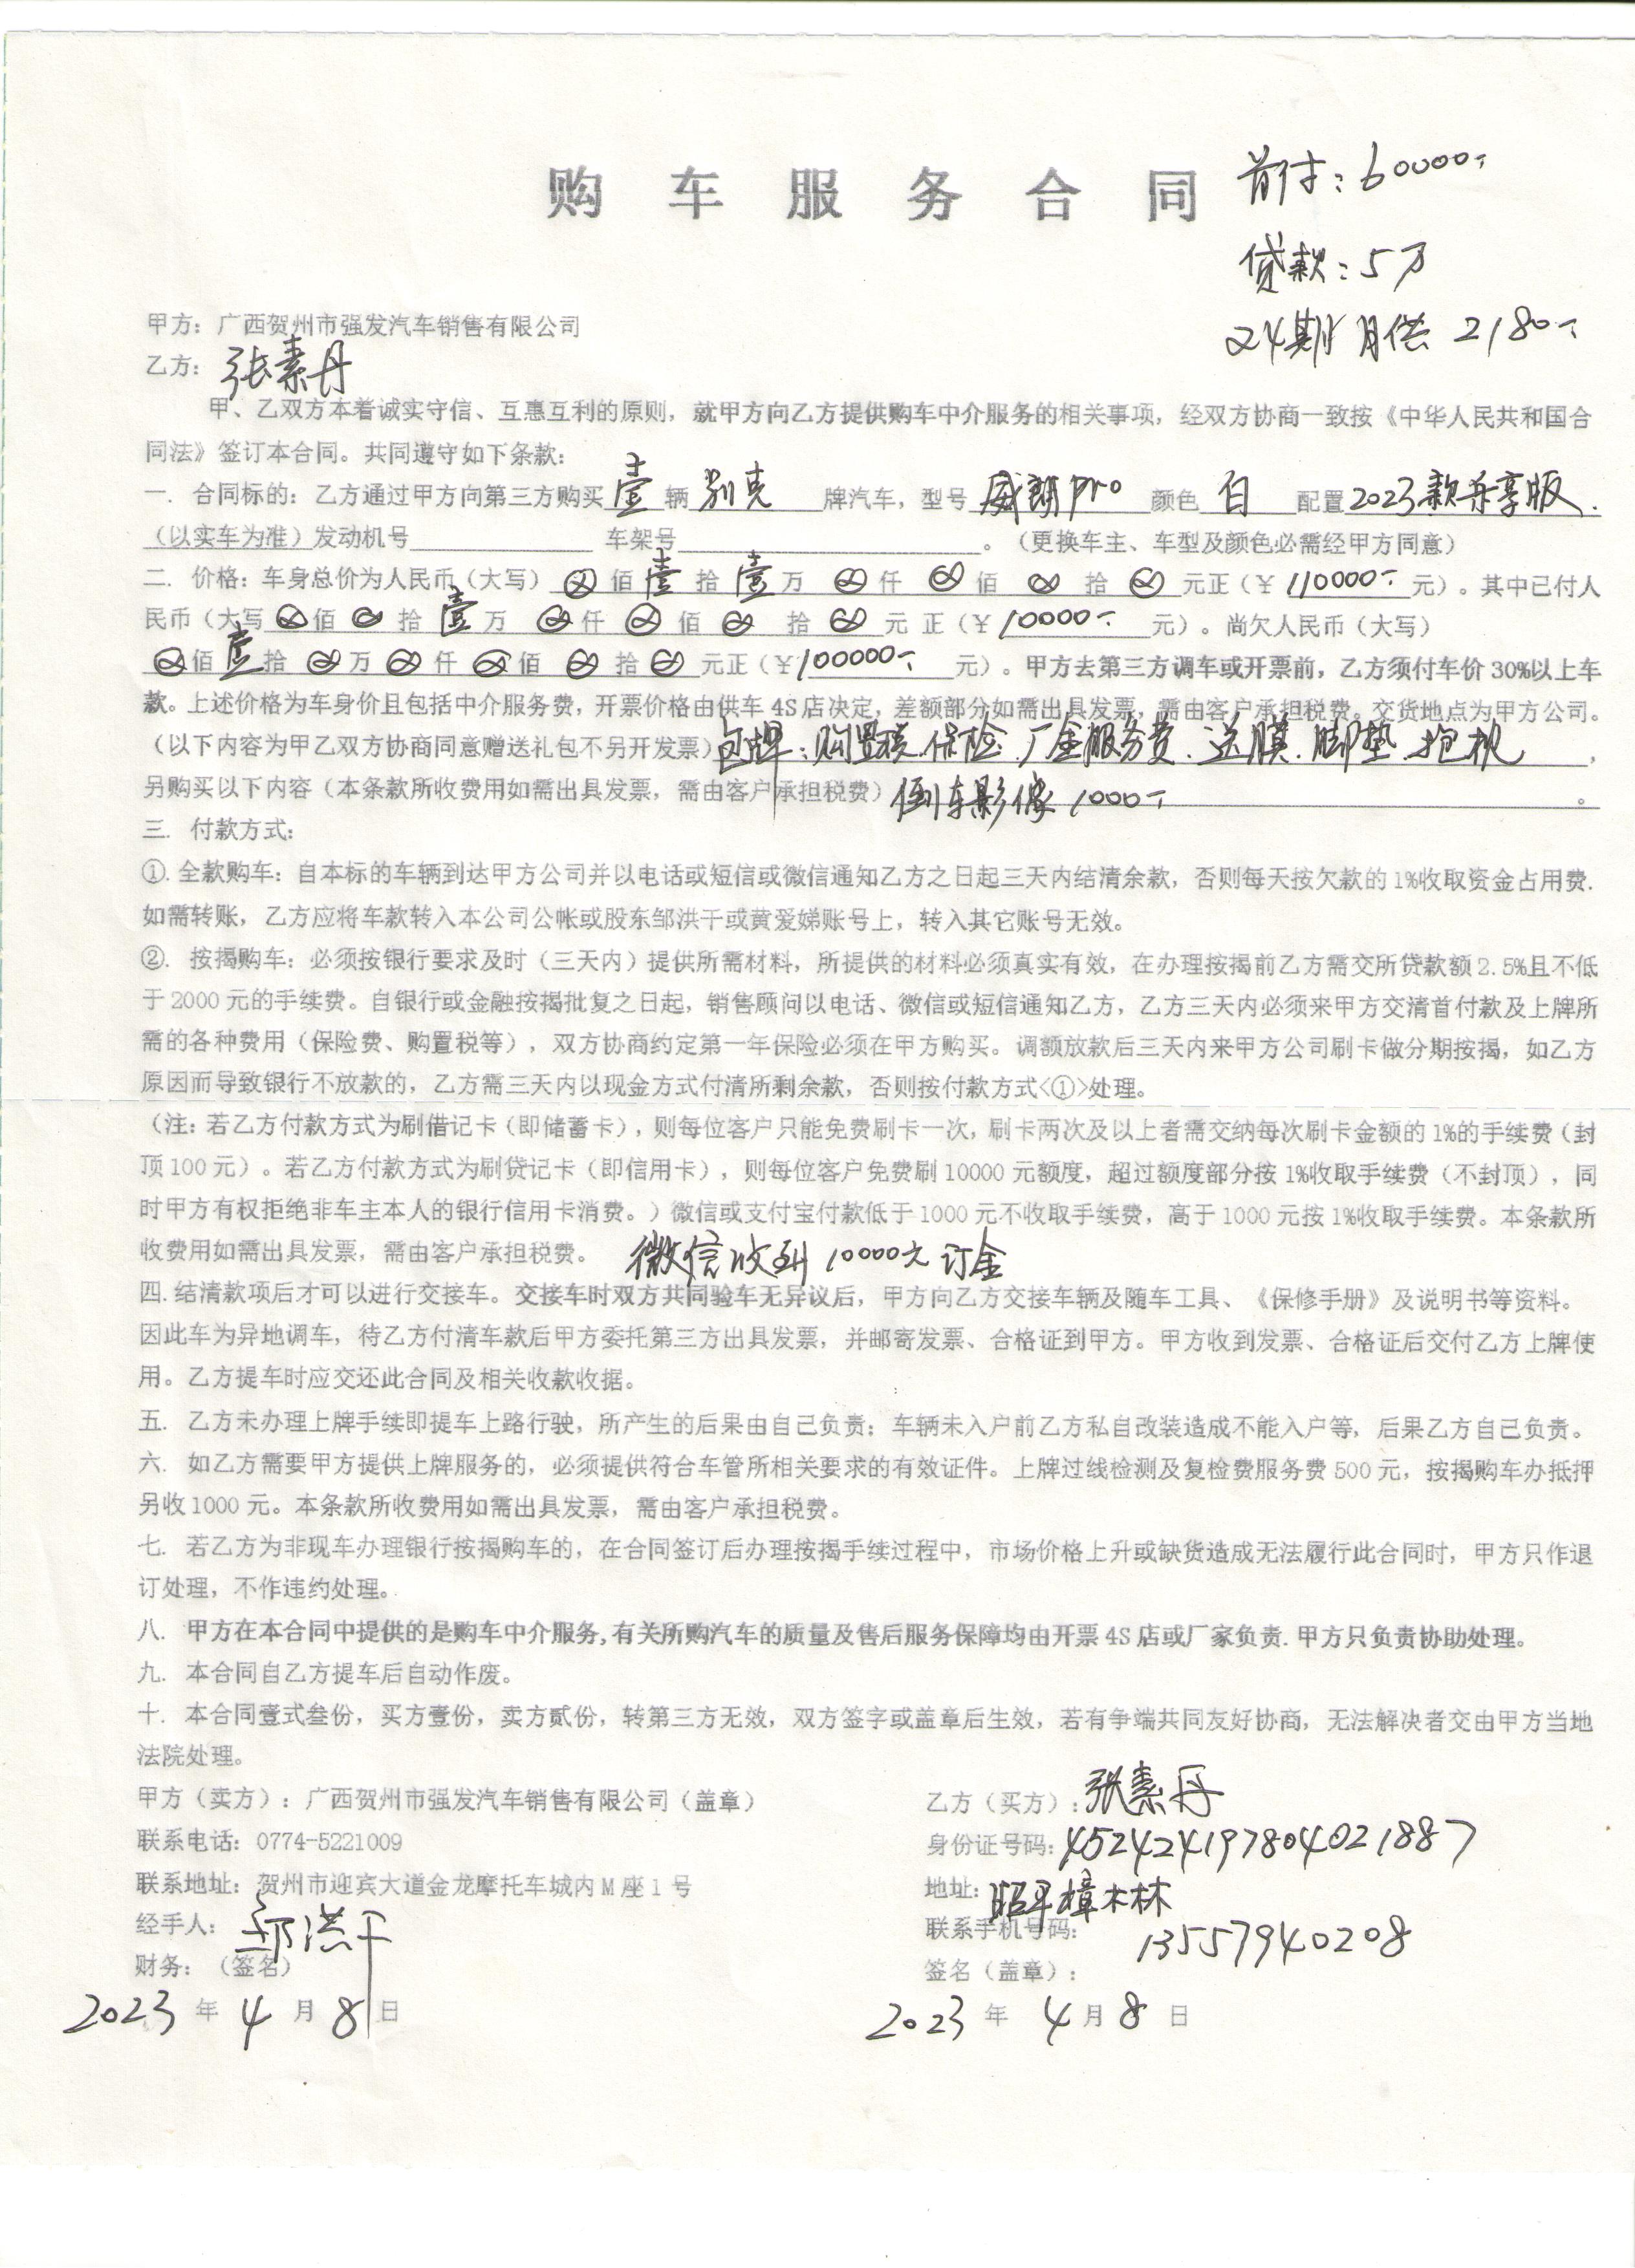 购车服务合同
首付：60000-
贷款：5万
24期 月供 2180-
甲方：广西贺州市强发汽车销售有限公司
乙方：张素丹
甲、乙双方本着诚实守信、互惠互利的原则，就甲方向乙方提供购车中介服务的相关事项，经双方协商一致按《中华人民共和国合
同法》签订本合同。共同遵守如下条款：
一. 合同标的：乙方通过甲方向第三方购买 壹 辆 别克 牌汽车，型号 威朗pro 颜色 白 配置 2023款乐享版.
（以实车为准）发动机号____ 车架号____。（更换车主、车型及颜色必需经甲方同意）
二. 价格：车身总价为人民币（大写）⊗佰壹拾壹万⊗仟⊗佰⊗拾⊗元正（¥110000-元）。其中已付人
民币（大写⊗佰⊗拾壹万⊗仟⊗佰⊗拾⊗元 正（¥10000-元）。尚欠人民币（大写）
⊗佰壹拾⊗万⊗仟⊗佰⊗拾⊗元正（¥100000-元）。甲方去第三方调车或开票前，乙方须付车价30%以上车
款。上述价格为车身价且包括中介服务费，开票价格由供车4S店决定，差额部分如需出具发票，需由客户承担税费。交货地点为甲方公司。
（以下内容为甲乙双方协商同意赠送礼包不另开发票）包牌：购置税.保险.厂金服务费.送膜.脚垫.抱枕，
另购买以下内容（本条款所收费用如需出具发票，需由客户承担税费）倒车影像 1000-。
三. 付款方式：
①. 全款购车：自本标的车辆到达甲方公司并以电话或短信或微信通知乙方之日起三天内结清余款，否则每天按欠款的1%收取资金占用费.
如需转账，乙方应将车款转入本公司公帐或股东邹洪干或黄爱娣账号上，转入其它账号无效。
②. 按揭购车：必须按银行要求及时（三天内）提供所需材料，所提供的材料必须真实有效，在办理按揭前乙方需交所贷款额2.5%且不低
于2000元的手续费。自银行或金融按揭批复之日起，销售顾问以电话、微信或短信通知乙方，乙方三天内必须来甲方交清首付款及上牌所
需的各种费用（保险费、购置税等），双方协商约定第一年保险必须在甲方购买。调额放款后三天内来甲方公司刷卡做分期按揭，如乙方
原因而导致银行不放款的，乙方需三天内以现金方式付清所剩余款，否则按付款方式<①>处理。
（注：若乙方付款方式为刷借记卡（即储蓄卡），则每位客户只能免费刷卡一次，刷卡两次及以上者需交纳每次刷卡金额的1%的手续费（封
顶100元）。若乙方付款方式为刷贷记卡（即信用卡），则每位客户免费刷10000元额度，超过额度部分按1%收取手续费（不封顶），同
时甲方有权拒绝非车主本人的银行信用卡消费。）微信或支付宝付款低于1000元不收取手续费，高于1000元按1%收取手续费。本条款所
收费用如需出具发票，需由客户承担税费。 微信收到10000元订金
四. 结清款项后才可以进行交接车。交接车时双方共同验车无异议后，甲方向乙方交接车辆及随车工具、《保修手册》及说明书等资料。
因此车为异地调车，待乙方付清车款后甲方委托第三方出具发票，并邮寄发票、合格证到甲方。甲方收到发票、合格证后交付乙方上牌使
用。乙方提车时应交还此合同及相关收款收据。
五. 乙方未办理上牌手续即提车上路行驶，所产生的后果由自己负责；车辆未入户前乙方私自改装造成不能入户等，后果乙方自己负责。
六. 如乙方需要甲方提供上牌服务的，必须提供符合车管所相关要求的有效证件。上牌过线检测及复检费服务费500元，按揭购车办抵押
另收1000元。本条款所收费用如需出具发票，需由客户承担税费。
七. 若乙方为非现车办理银行按揭购车的，在合同签订后办理按揭手续过程中，市场价格上升或缺货造成无法履行此合同时，甲方只作退
订处理，不作违约处理。
八. 甲方在本合同中提供的是购车中介服务,有关所购汽车的质量及售后服务保障均由开票4S店或厂家负责.甲方只负责协助处理。
九. 本合同自乙方提车后自动作废。
十. 本合同壹式叁份，买方壹份，卖方贰份，转第三方无效，双方签字或盖章后生效，若有争端共同友好协商，无法解决者交由甲方当地
法院处理。
甲方（卖方）：广西贺州市强发汽车销售有限公司（盖章）
联系电话：0774-5221009
联系地址：贺州市迎宾大道金龙摩托车城内M座1号
经手人：邹洪干
财务：（签名）
2023 年 4 月 8 日
乙方（买方）：张素丹
身份证号码：452424197804021887
地址：昭平樟木林
联系手机号码：13557940208
签名（盖章）：
2023 年 4 月 8 日